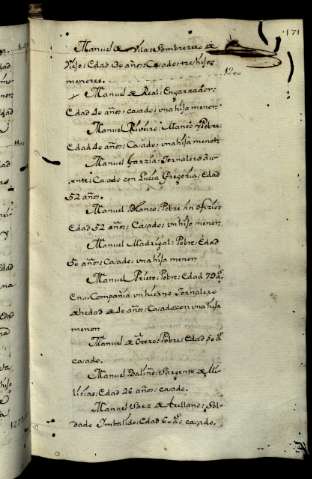 171
Manuel de Vilas Sombrerero de
Viejo: Edad 30 años: Casado tres hijos
menores.
12..
Manuel de Real: Engarzador:
Edad 40 años: casado una hija menor.
Manuel Manco Pobre:
Edad 40 años: Casado: un hijo menor:
Manuel Garzia: Jornalero
Casado con Luisa Gregoria: Edad
52 años.
Manuel Blanco: Pobre sin oficio:
Edad 52 años: Casado: un hijo menor:
Manuel Madrigal: Pobre: Edad
50 años: Casado: una hija menor
Manuel Prieto: Pobre: Edad 70 as.
En su Compañia un hierno Jornalero
de hedad de 40 años: Casado con una hija
menor
Manl. de Otero: Pobre: Edad as.
casado.
Manuel Sargento de Mi
licias: Edad 26 años: casado.
Manuel Saez de Arellano: Sol
dado Imbalido: Edad 60 as. casado.